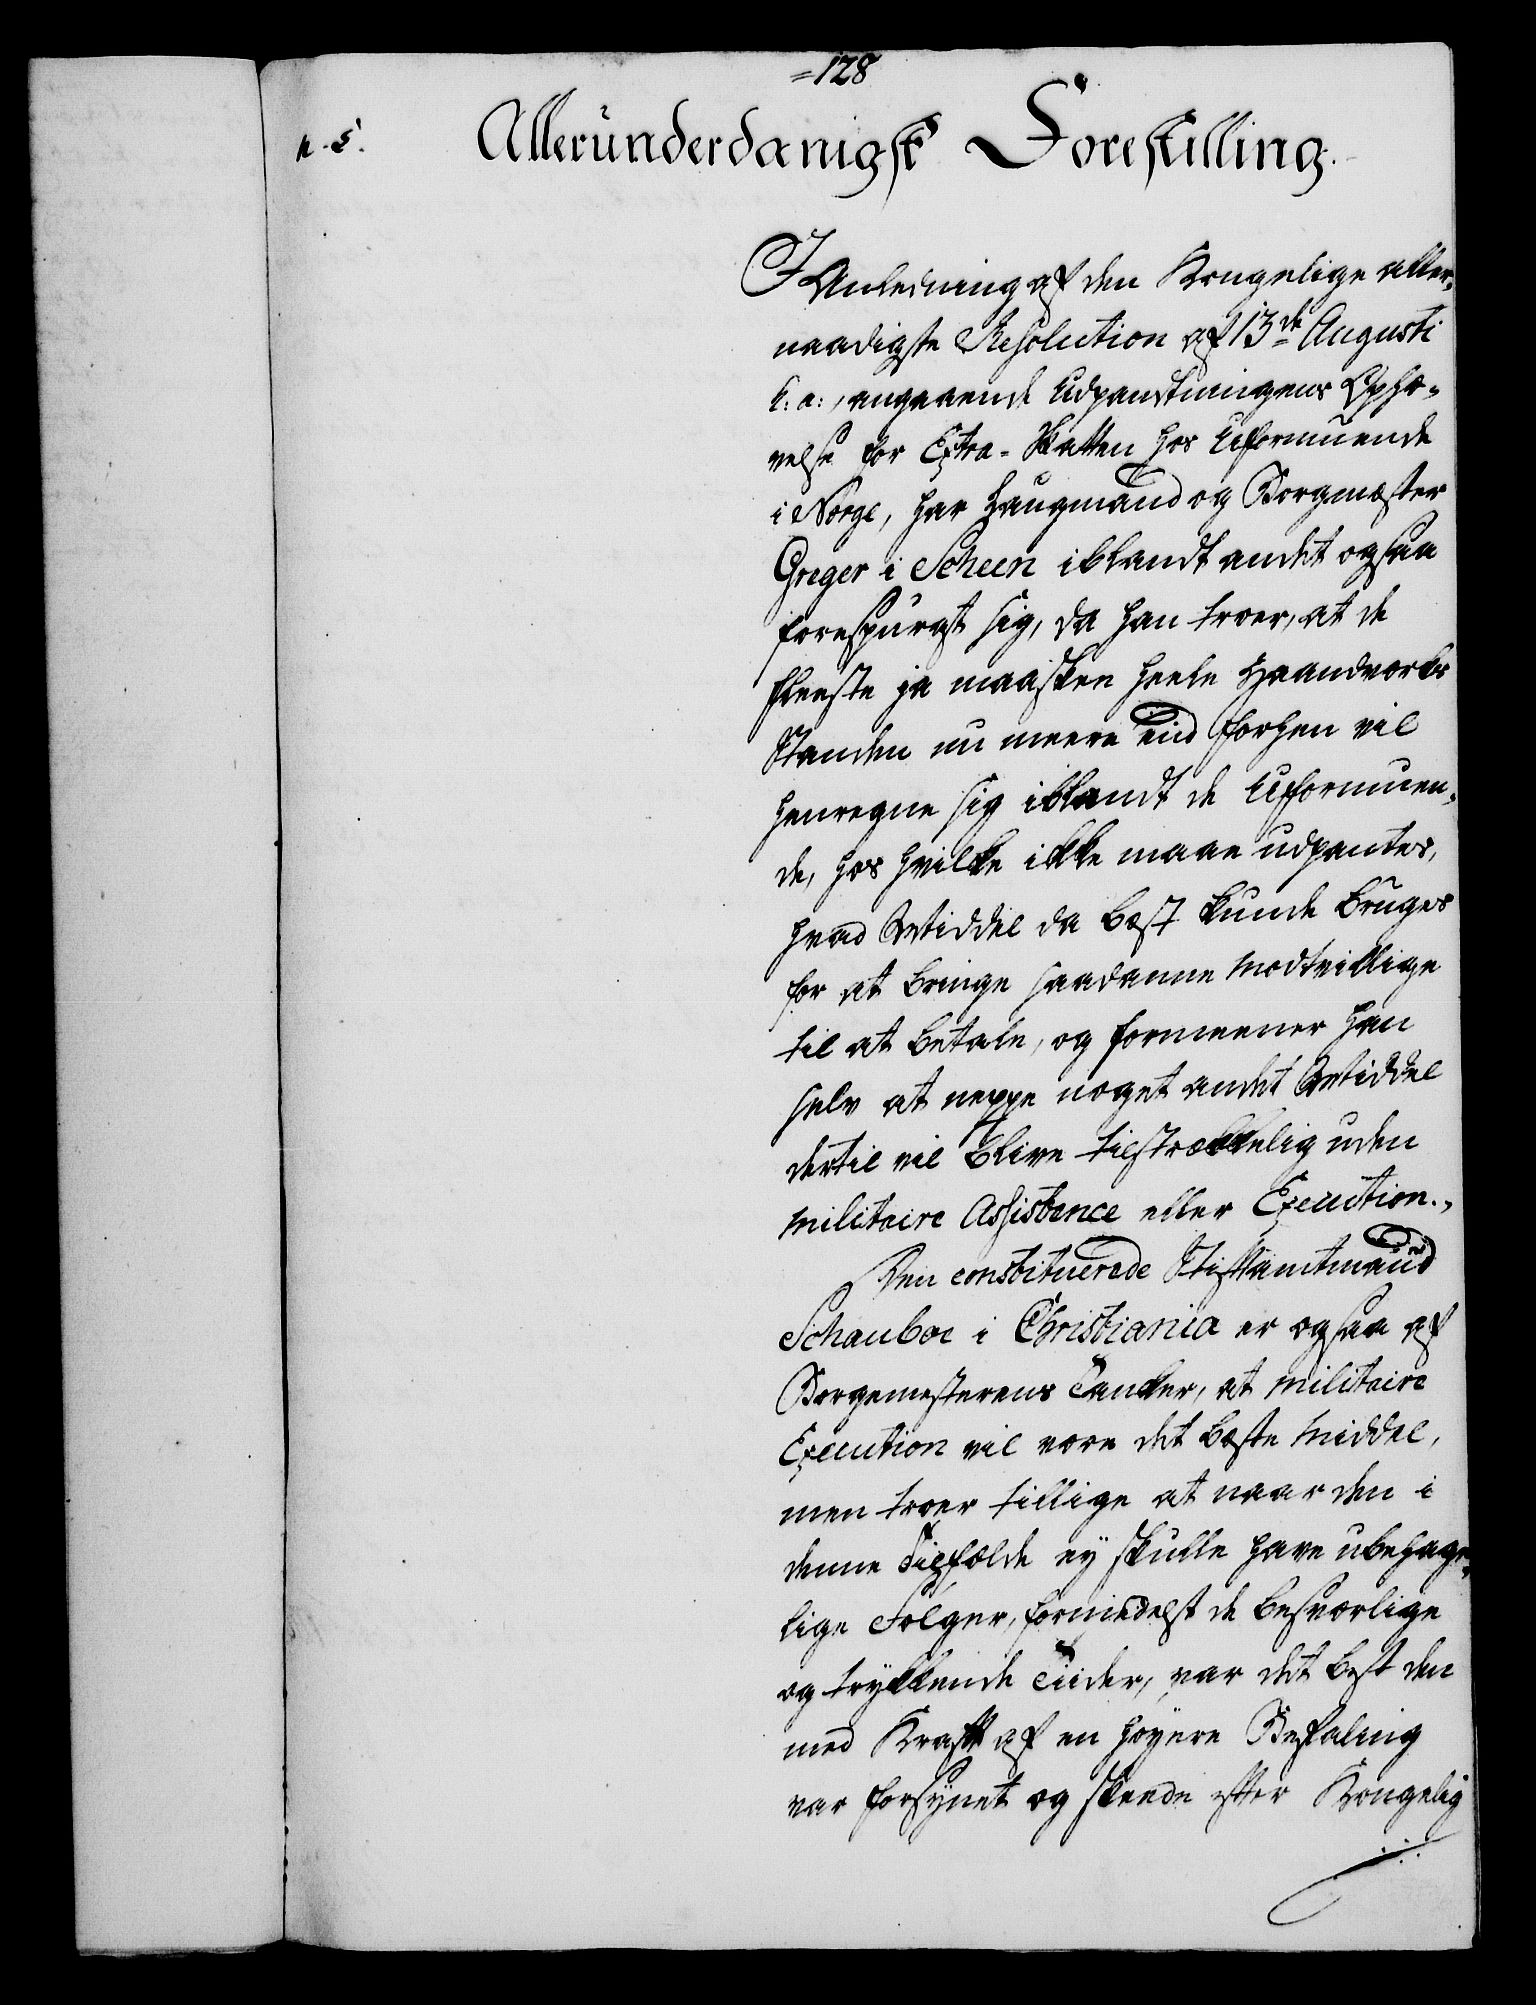 =128
n. 5.
Allerunderdanigst Forestilling.
I Anledning af den Kongelige aller-
naadigste Resolution af 13de Augusti
h: a:, angaaende Udpantningens Ophæ-
velse for Extra-Skatten hos Uformuende
i Norge, har Laugmand og Borgmester
Greger i Scheen iblandt andet ogsaa
forespurgt sig, da han troer, at de
fleeste ja maaskee heele Haandværks
Standen nu meere end forhen vil
henregne sig iblandt de Uformuen-
de, hos hvilke ikke maae udpantes,
hvad Middel da best kunde bruges
for at bringe saadanne Modtvillige
til at betale, og formeener han
selv at neppe noget andet Middel
dertil vil blive tilstrækkelig uden
Militaire Assistence eller Execution.
Den constituerede Stiftamtmand
Schauboe i Christiania er ogsaa af
Borgemesterens Tanker, at Militaire
Execution vil være det beste Middel,
men troer tillige at naar den i
denne Tilfælde ey skulle have ubehage-
lige Følger, formedelst de besværlige
og trykkende Tiider, var det best den
med Kraft af en høyere Befaling
var forsynet og skeede efter Kongelig